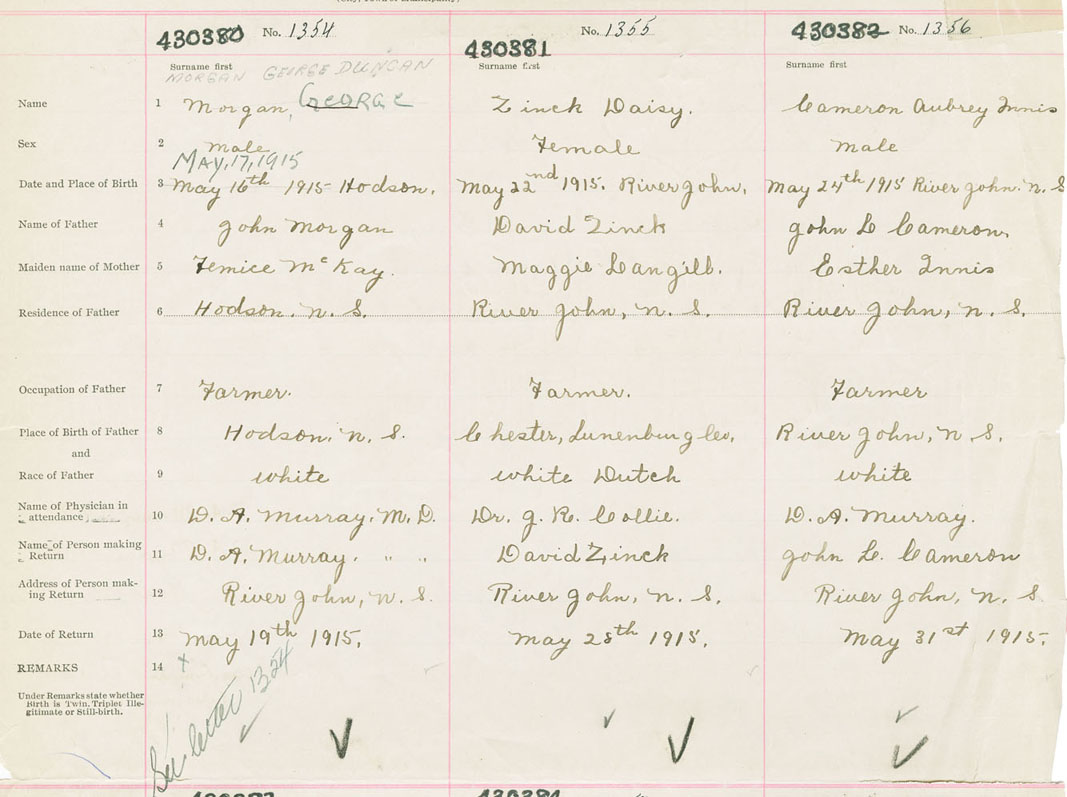 430380 No. 1354 430381 No. 1355 430382 No. 1356
Surname first Surname first Surname first
MORGAN GEORGE DUNCAN
Name 1 Morgan, GEORGE Zinck Daisy. Cameron Aubrey Innis
Sex 2 male Female male
MAY, 17, 1915
Date and Place of Birth 3 May 16th 1915 Hodson. May 22nd 1915. River John, May 24th 1915 River John. N. S
Name of Father 4 John Morgan David Zinck John L Cameron.
Maiden name of Mother 5 McKay. Maggie Langill. Esther Innis
Residence of Father 6 Hodson. N. S. River John, N. S. River John, N. S.
Occupation of Father 7 Farmer. Farmer. Farmer
Place of Birth of Father 8 Hodson. N. S. Chester, Lunenburg Co. River John, N. S.
and
Race of Father 9 white white Dutch white
Name of Physician in
attendance 10 D. A. Murray. M. D. Dr. J. R. Collie. D. A. Murray.
Name of Person making
Return 11 D. A. Murray. " " David Zinck John L. Cameron
Address of Person mak-
ing Return 12 River John, N. S. River John, N. S. River John, N. S.
Date of Return 13 May 19th 1915. May 28th 1915. May 31st 1915.
REMARKS 14 x
Under Remarks state whether
Birth is Twin, Triplet Ille-
gitimate or Still-birth.
See letter 1324